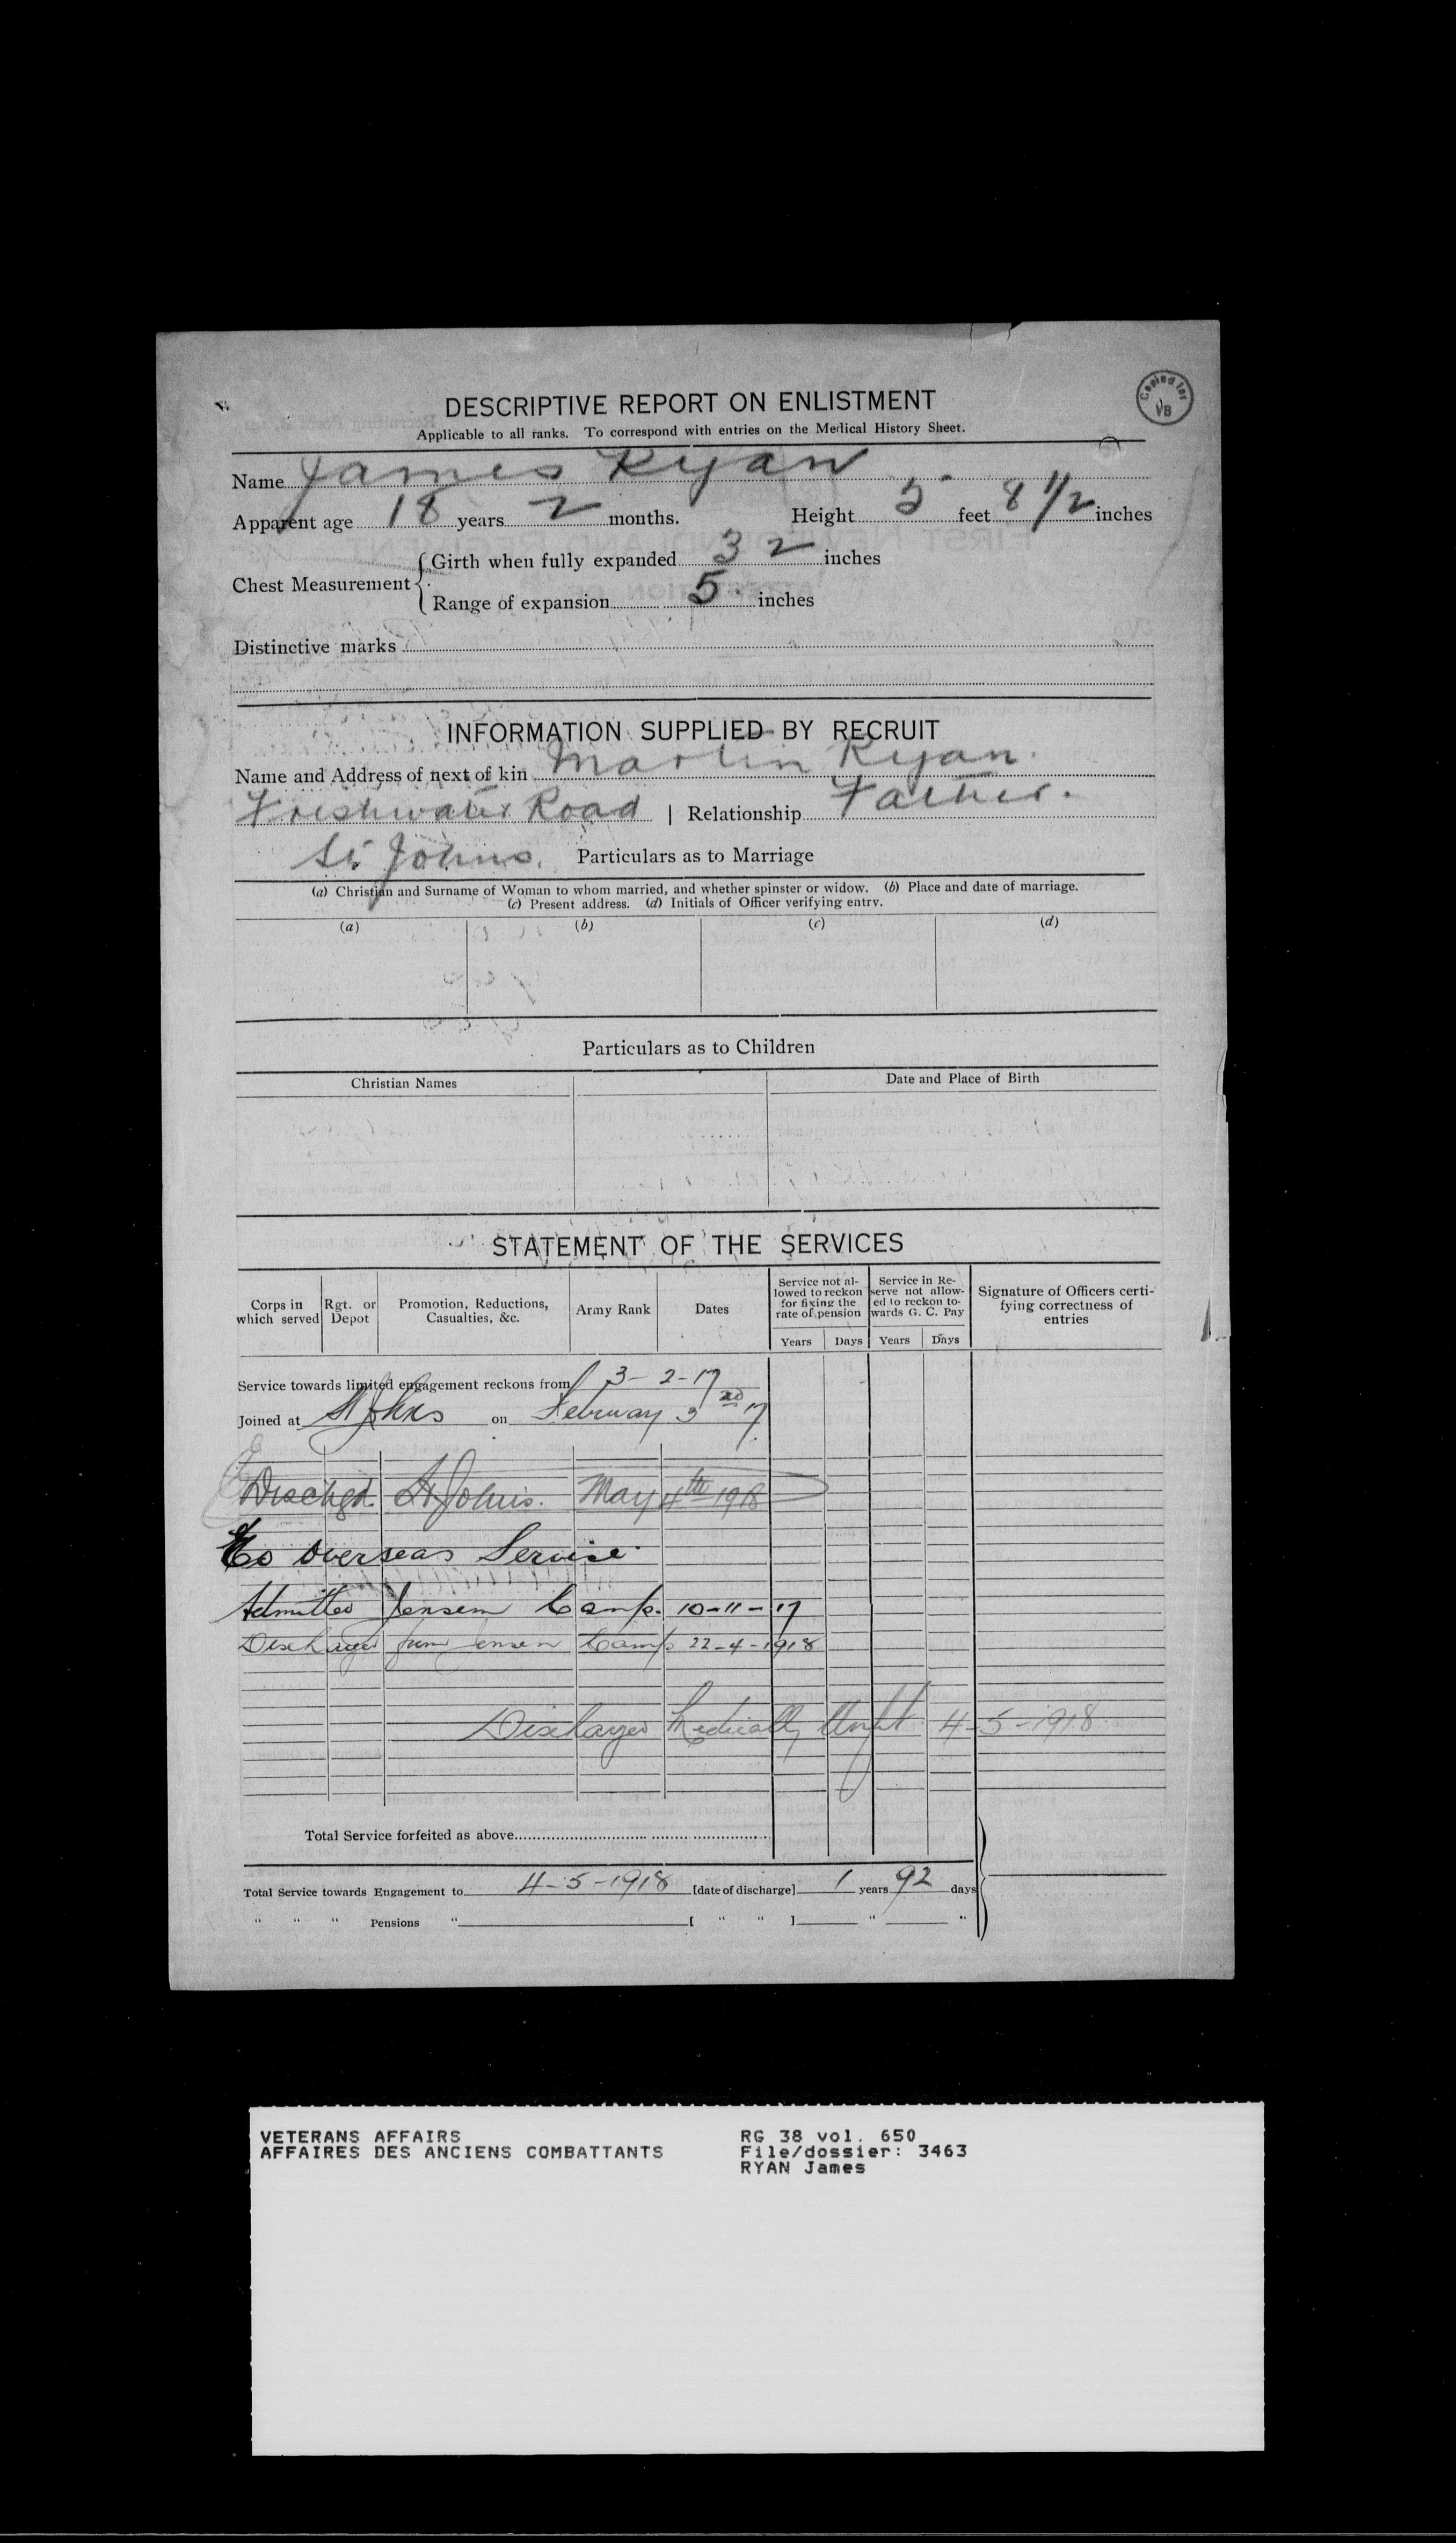 DESCRIPTIVE REPORT ON ENLISTMENT
Copied for VB
Applicable to all ranks. To correspond with entries on the Medical History Sheet.
Name James Ryan
Apparent age 18 years 2 months. Height 5 feet 8 1/2 inches
Chest Measurement
Girth when fully expanded 32 inches
Range of expansion 5. inches
Distinctive marks
INFORMATION SUPPLIED BY RECRUIT
Name and Address of next of kin Martin Ryan.
Freshwater Road | Relationship Father.
St Johns. Particulars as to Marriage
(a) Christian and Surname of Woman to whom married, and whether spinster or widow. (b) Place and date of marriage.
(c) Present address. (d) Initials of Officer verifying entry.
(a) (b) (c) (d)
Particulars as to Children
Christian Names Date and Place of Birth
STATEMENT OF THE SERVICES
Corps in which served Rgt. or Depot Promotion, Reductions, Casualties, &c. Army Rank Dates Service not allowed to reckon for fixing the rate of pension Service in Reserve not allowed to reckon towards G. C. Pay Signature of Officers certifying correctness of entries
Years Days Years Days
Service towards limited engagement reckons from 3-2-17
Joined at St Johns on February 3rd 17
Dischgd. St Johns. May 4th 1918
No Overseas Service.
Admitted Jensen Camp. 10-11-17
Discharged from Jensen Camp 22-4-1918
Discharged Medically Unfit 4-5-1918.
Total Service forfeited as above
Total Service towards Engagement to 4-5-1918 [date of discharge] 1 years 92 days
" " " Pensions " [ " " ] " "
VETERANS AFFAIRS RG 38 vol. 650
AFFAIRES DES ANCIENS COMBATTANTS File/dossier: 3463
RYAN James